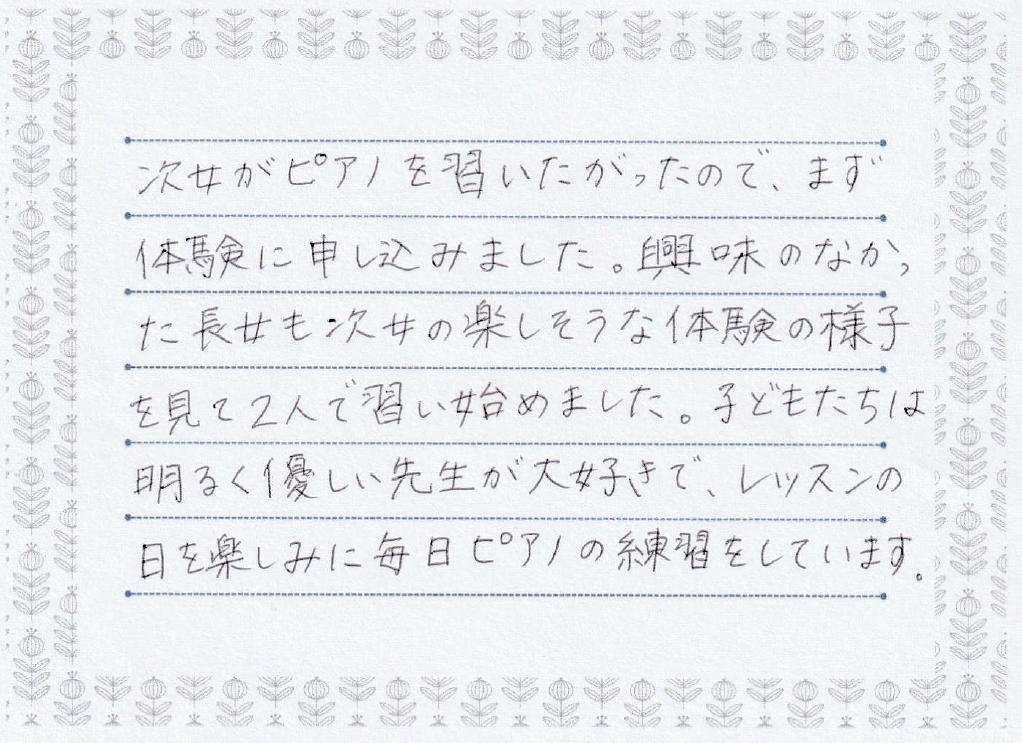 次女がピアノを習いたがったので、まず
体験に申し込みました。興味のなかっ
た長女も次女の楽しそうな体験の様子
を見て2人で習い始めました。子どもたちは
明るく優しい先生が大好きで、レッスンの
日を楽しみに毎日ピアノの練習をしています。